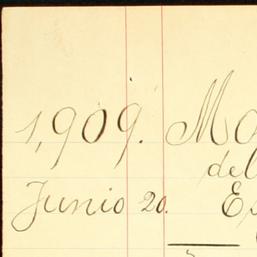 1,909. Mo
del
Junio 20. Es